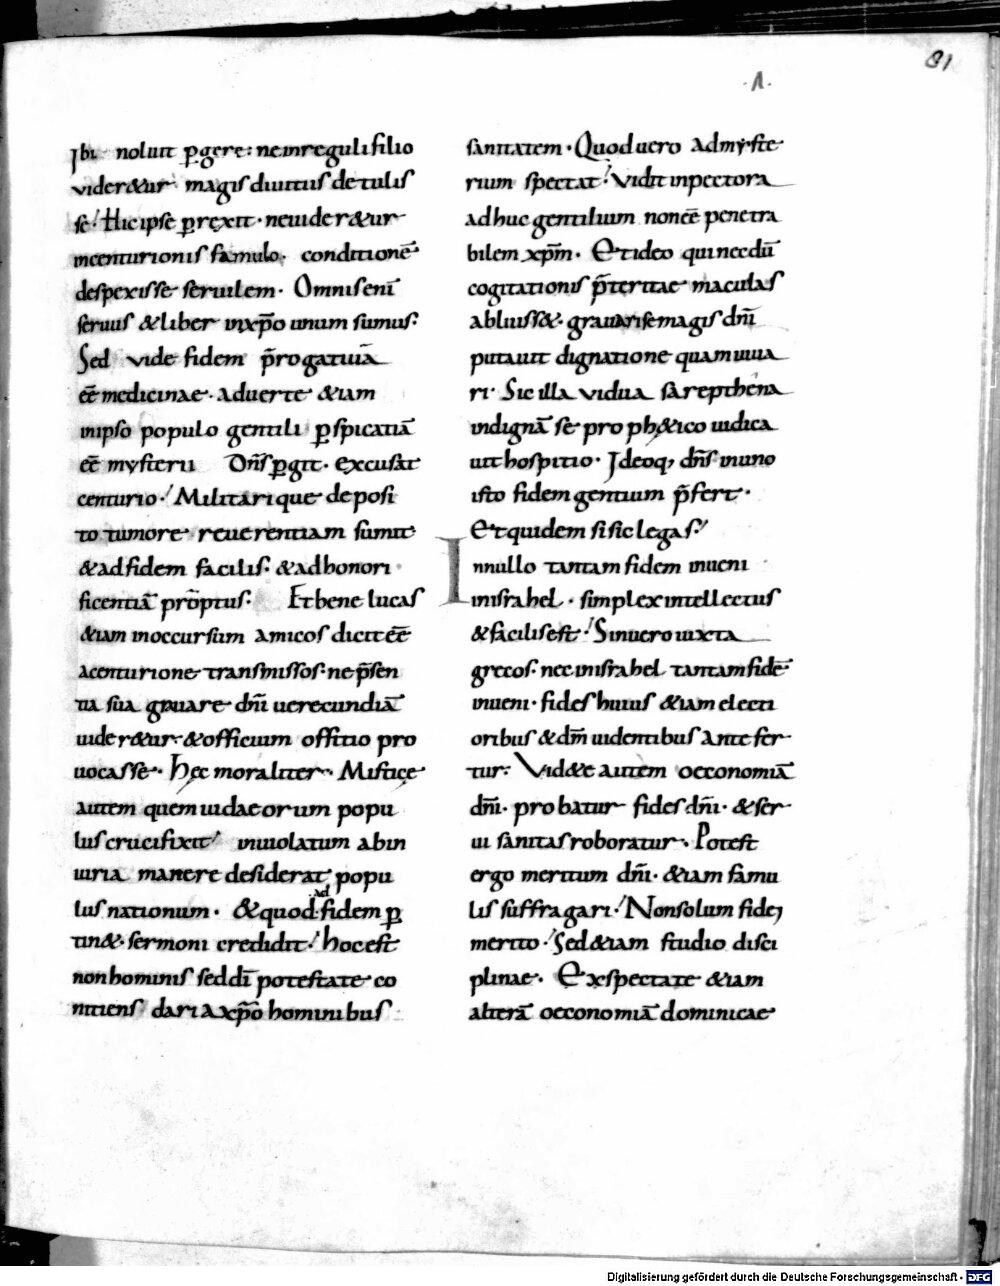 81
.Λ.
Ibi noluit p̱gere: neinreguli filio
vider&ur magis diuitiis detulis
se! Hic ipse p̱rexit · neuider&ur
incenturionis famulo · conditionē
despexisse seruilem · Omnis enī
seruus &liber inxp̄o unum sumus:
Sed vide fidem p̄rogatiuā
eē medicinae · aduerte &iam
inipso populo gentili p̱spicatiā
eē mysterii Dn̄s p̱git · excusat
centurio ·! Militarique deposi
to tumore reuerentiam sumit
&adfidem facilis: &adhonori
ficentiā prōptus: Et bene lucas
&iam inoccursum amicos dicit eē
acenturione transmissos · ne p̄sen
tia sua grauare dn̄i uerecundiā
uider&ur &officium offitio pro
uocasse · Hęc moraliter · Misticę
autem quem iudaeorum popu
lus crucifixit! inuiolatum abin
iuria manere desiderat popu
lus nationum · &quod ad fidem p̱
tin& · sermoni credidit! hoc est
non hominis sed dī potestate co
nitiens dari a xp̄o hominibus
sanitatem · Quod uero admyste
rium spectat! Vidit inpectora
adhuc gentilium non eē penetra
bilem xp̄m · Et ideo qui necdū
cogitationis p̄teritae maculas
abluiss& · grauari se magis dn̄i
putauit dignatione quam iuua
ri · Sic illa vidua sarepthena
indignā se proph&ico iudica
uit hospitio · Ideoq; dn̄s in uno
isto fidem gentium p̄fert ·
Et quidem si sic legas!
In nullo tantam fidem inueni
inisrahel · simplex intellectus
&facilis est! Sin uero iuxta
grecos · nec inisrahel tantam fidē
inueni · fides huius &iam electi
oribus &dm̄ uidentibus antefer
tur: Vid&e autem oeconomiā
dn̄i · probatur fides dn̄i · &ser
ui sanitas roboratur · Potest
ergo meritum dn̄i · &iam famu
lis suffragari! Non solum fidei
merito! Sed &iam studio disci
plinae · Exspectate &iam
alterā oeconomiā dominicae
Digitalisierung gefördert durch die Deutsche Forschungsgemeinschaft - DFG